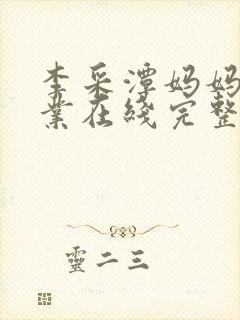 李采潭妈妈
業在綫完整
靈二三